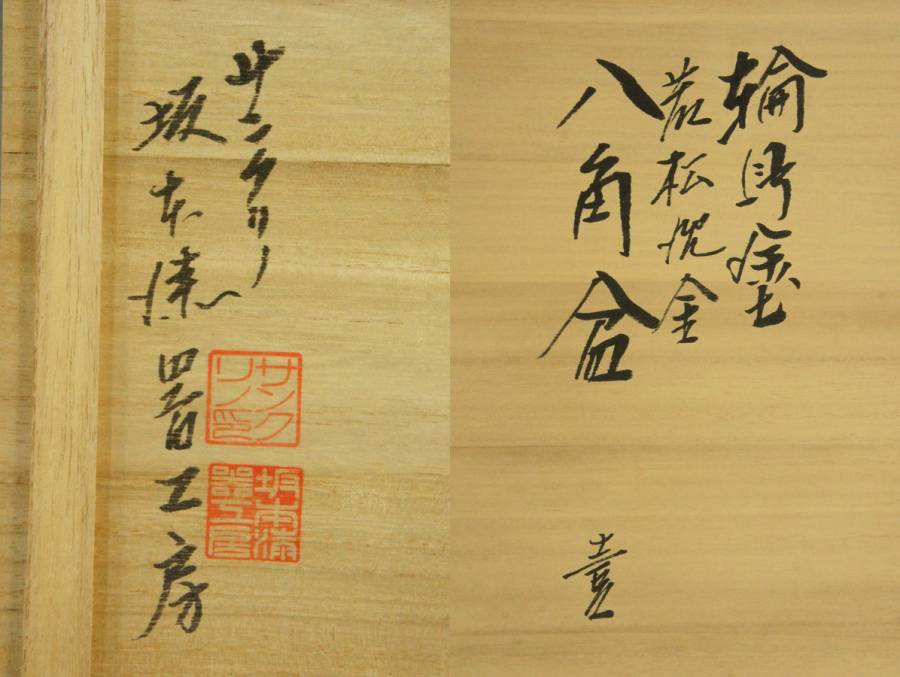 輪島塗
若松沈金
八角盆
壹
サンクリノ
坂本漆器工房
サンク
リノ印
坂本漆
器工房